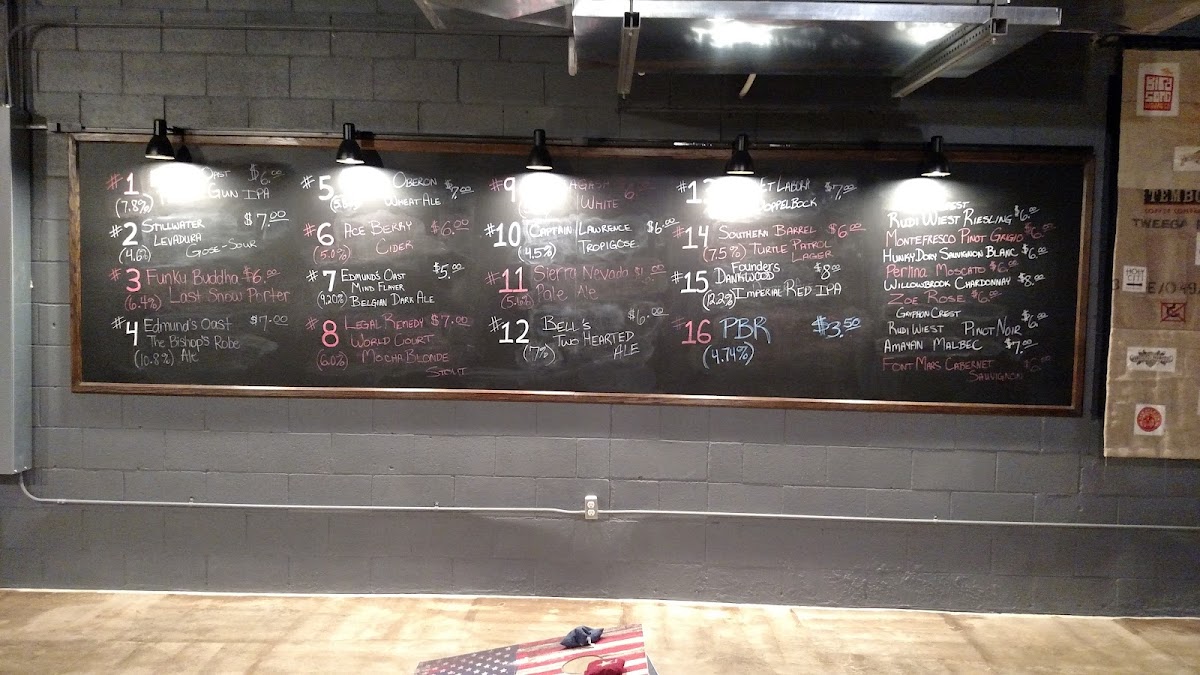 #1 OAST $6.00
GUN IPA
(7.8%)
#2 STILLWATER $7.00
LEVADURA
(4.6%) GOSE-SOUR
#3 Funky Buddha $6.00
(6.4%) Last Snow Porter
#4 Edmund's Oast $7.00
The Bishop's Robe
(10.8%) Ale
#5 OBERON $7.00
WHEAT ALE
#6 ACE BERRY $6.00
(5.0%) CIDER
#7 EDMUND'S OAST $5.00
MIND FLAYER
(9.20%) BELGIAN DARK ALE
#8 LEGAL REMEDY $7.00
WORLD COURT
(6.0%) MOCHA BLONDE
STOUT
#9
WHITE
#10 CAPTAIN LAWRENCE $6.00
(4.5%) TROPIGOSE
#11 Sierra Nevada
(5.6%) Pale Ale
#12 BELL'S $6.00
(7%) TWO HEARTED
ALE
ET LABORA $7.00
DOPPELBOCK
#14 SOUTHERN BARREL $6.00
(7.5%) TURTLE PATROL
LAGER
#15 FOUNDERS $8.00
DANKWOOD
(12.2%) IMPERIAL RED IPA
#16 PBR $3.50
(4.74%)
RUDI WIEST RIESLING $6.00
MONTEFRESCO PINOT GRIGIO $6.00
HUNKY DORY SAUVIGNON BLANC $6.00
Perlina MOSCATO $6.00
WILLOWBROOK CHARDONNAY $8.00
ZOE ROSE $6.00
GRYPHON CREST
RUDI WIEST PINOT NOIR $6.00
AMAYAN MALBEC $7.00
FONT MARS CABERNET
SAUVIGNON